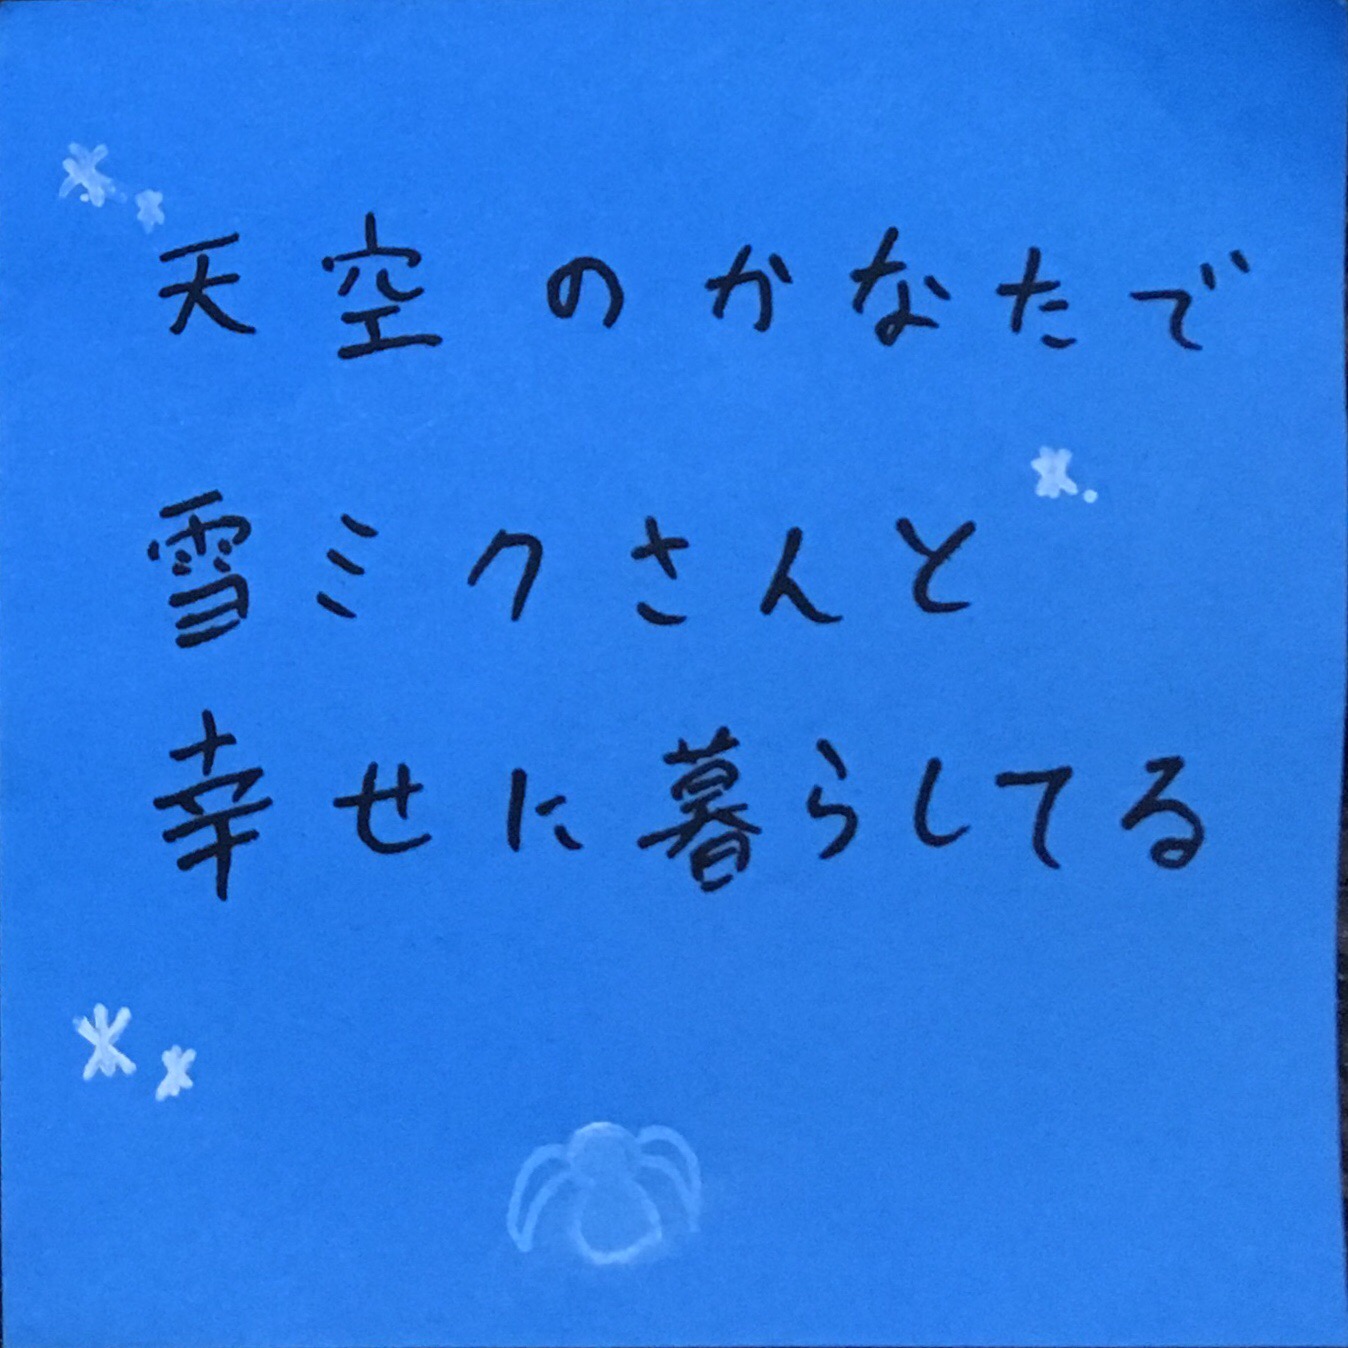 天空のかなたで
雪ミクさんと
幸せに暮らしてる